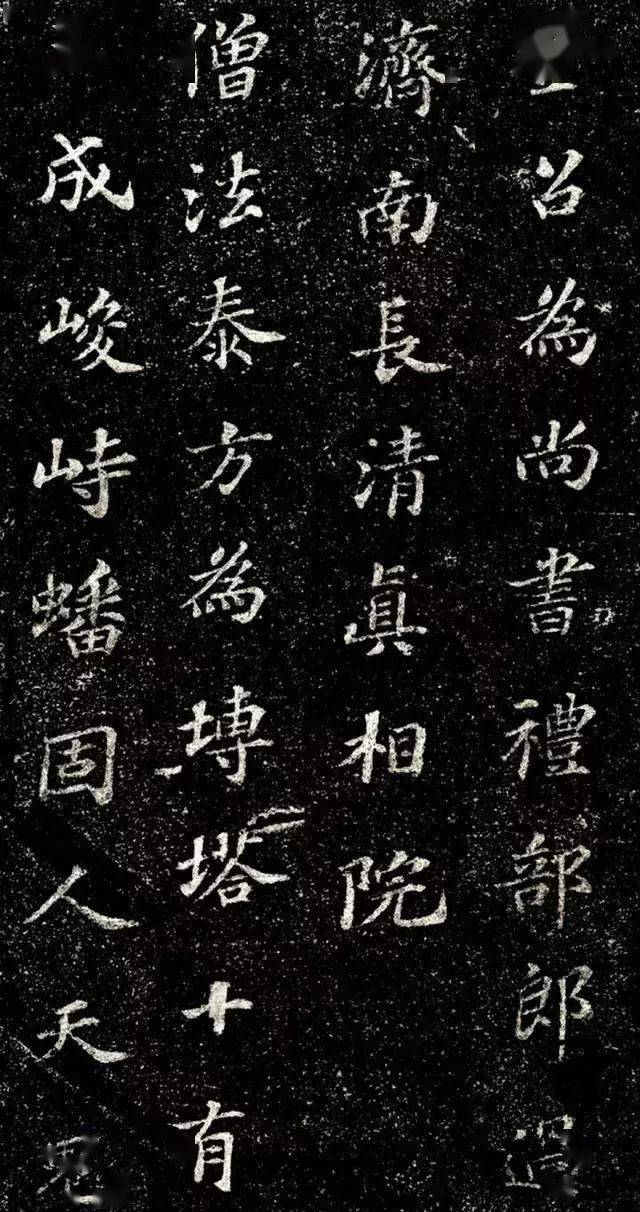 召為尚書禮部郎過
濟南長清眞相院
僧法泰方為塼塔十有
成峻峙蟠固人天鬼